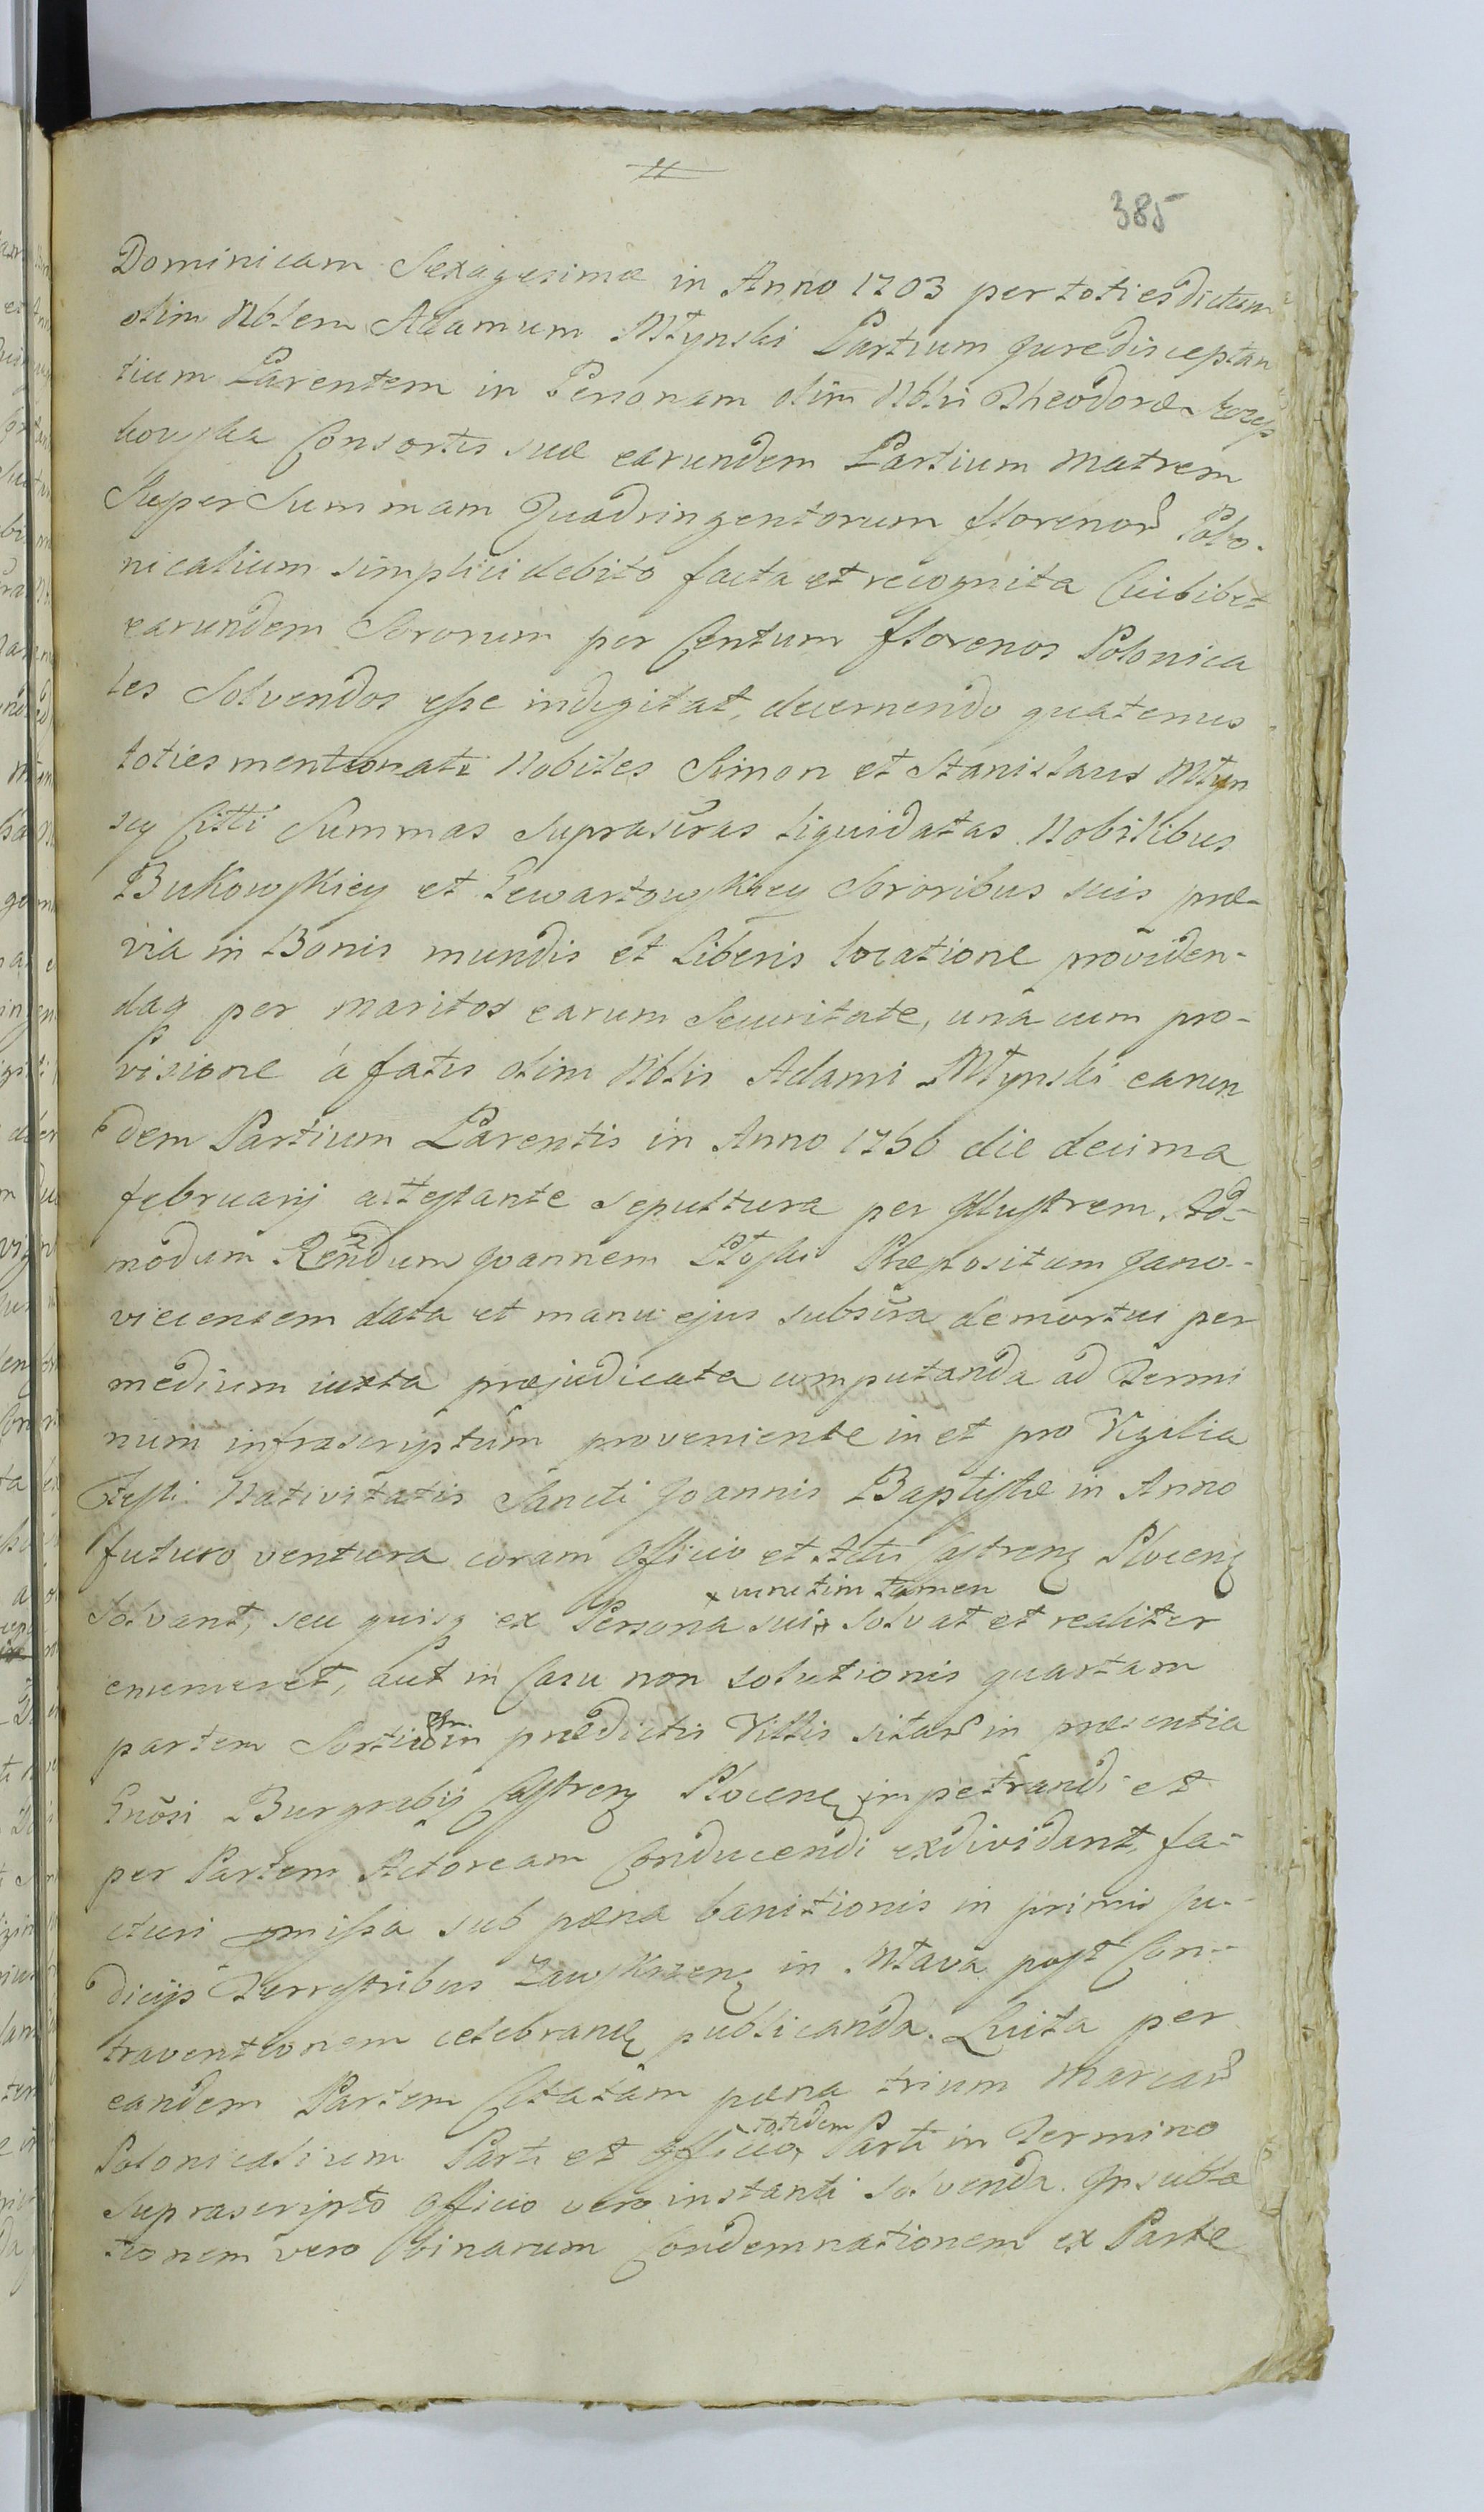 385
Dominicam Sexagesimæ in Anno 1703 per toties dictum
olim Nblem Adamum Młynski Partium jure disceptan
tium Parentem in Personam olim Nblis Theodoræ
kowska Consortis suæ earundem Partium Matrem
Super Summam Quadringentorum florenor Polo-
nicalium simplici debito facta et recognita Cuilibet
earundem Sororum per Centum florenos Polonica
les Solvendos esse indigitat, decernendo quatenus
toties mentionati Nobiles Simon et Stanislaus Młyn
scy Citti Summas suprascras liquidatas Nobilibus
Bukowskiey et Lewartowskiey Sororibus suis præ-
via in Bonis mundis et liberis locatione providen-
daq per maritos earum Securitate, una cum pro-
visione á fatis olim Nblis Adami Młynski earun
dem Partium Parentis in Anno 1756 die decima
februarij attestante sepultura per Illustrem Ad-
modum Rendum Joannem Præpositum Jano-
vieciensem data et manu ejus subscra demortui per
medium iuxta præjudicata computanda ad Termi
num infrascriptum proveniente in et pro Vigilia
Festi Nativitatis Sancti Joannis Baptistæ in Anno
futuro ventura coram Officio et Actis Castren Plocen
x cunctim tamen
Solvant, seu quisq ex Persona sui x solvat et realiter
enumeret, aut in Casu non solutionis quartam
partem Sortium in prædictis Villis sitar in præsentia
Gnosi Burgrabij Castren Plocen impetrandi et
per Partem Actoream Conducendi exdividant, fa-
cturi præmissa sub pæna banitionis in primis Ju-
dicijs Terrestribus Zawskrzen in Mlava post Con-
traventionem celebrand publicanda. Luita per
eandem Partem Citatam pæna trium Marcar
totidem
Polonicalium Parti et Officio x Parti in Termino
Suprascripto Officio vero instanti solvenda. In subla
tionem vero binarum Condemnationem ex Parte